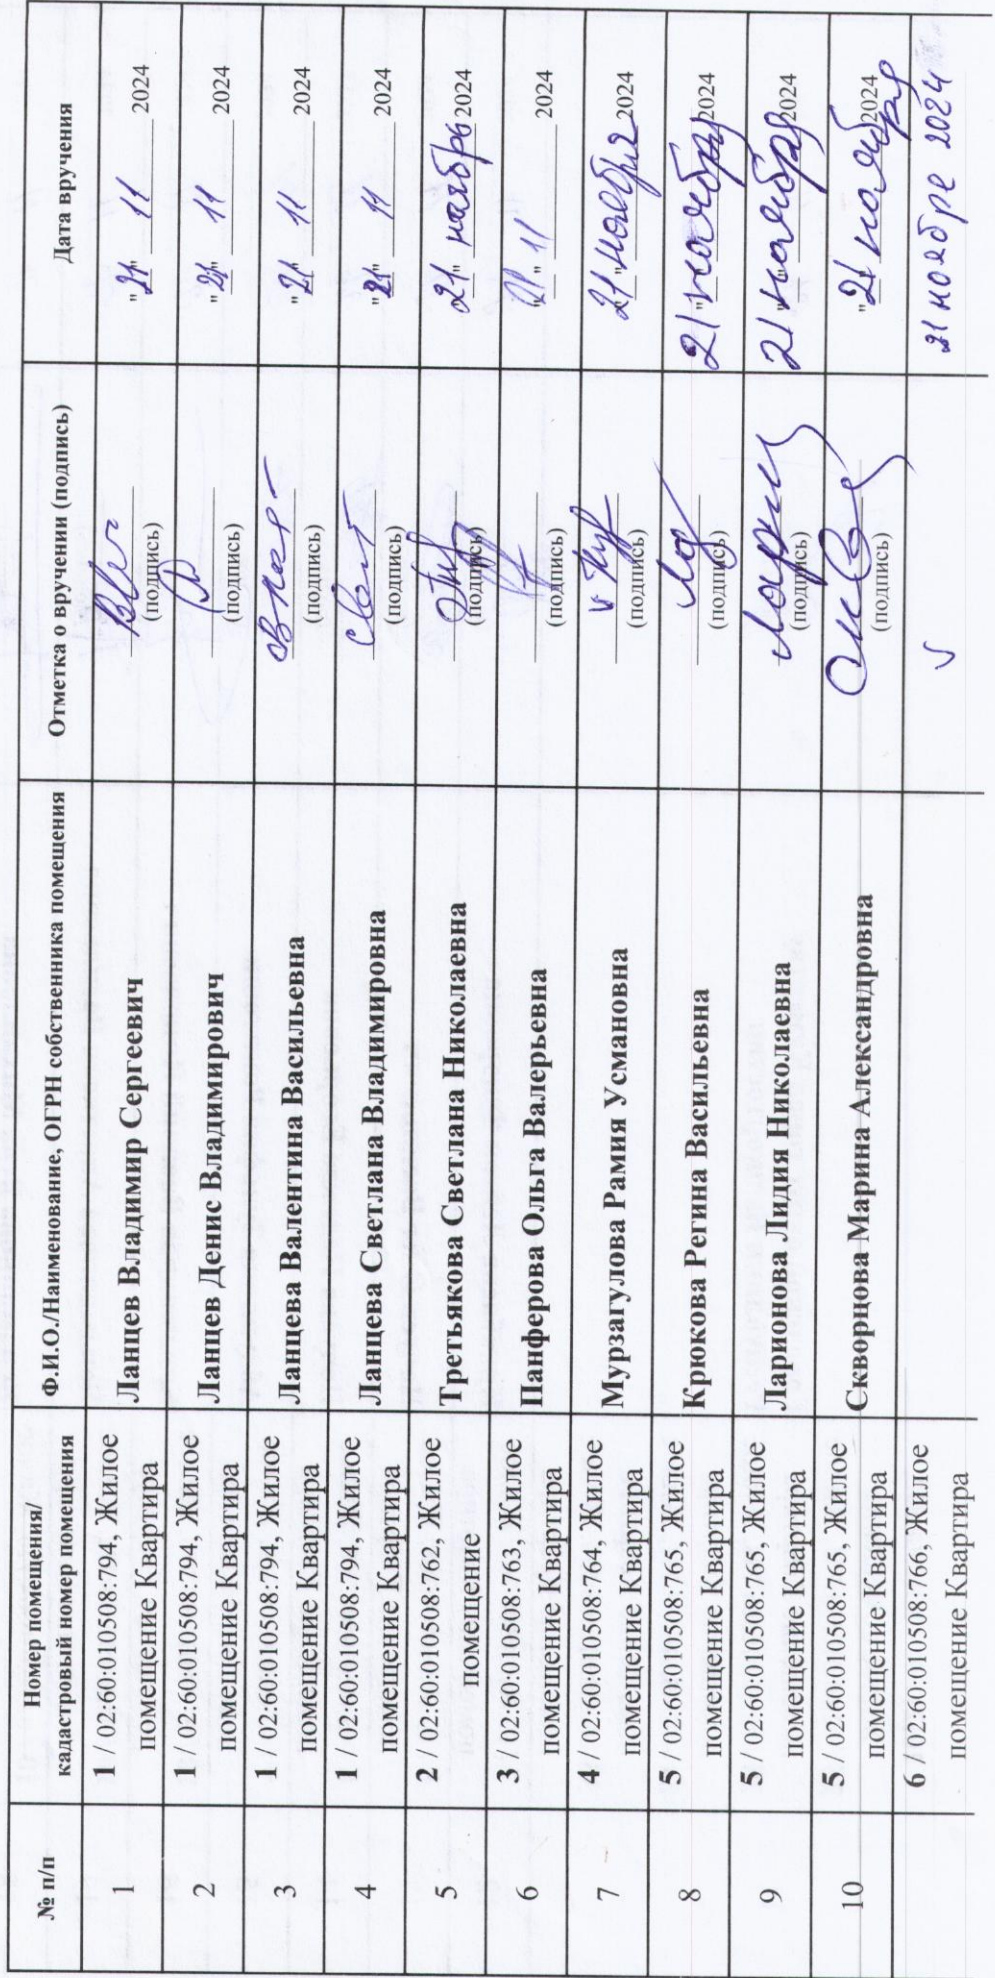 № п/п
Номер помещения/
кадастровый номер помещения
Ф.И.О./Наименование, ОГРН собственника помещения
Отметка о вручении (подпись)
Дата вручения
1
1 / 02:60:010508:794, Жилое
помещение Квартира
Ланцев Владимир Сергеевич
(подпись)
"21" 11 2024
2
1 / 02:60:010508:794, Жилое
помещение Квартира
Ланцев Денис Владимирович
(подпись)
"21" 11 2024
3
1 / 02:60:010508:794, Жилое
помещение Квартира
Ланцева Валентина Васильевна
(подпись)
"21" 11 2024
4
1 / 02:60:010508:794, Жилое
помещение Квартира
Ланцева Светлана Владимировна
(подпись)
"21" 11 2024
5
2 / 02:60:010508:762, Жилое
помещение
Третьякова Светлана Николаевна
(подпись)
21" ноябрь 2024
6
3 / 02:60:010508:763, Жилое
помещение Квартира
Панферова Ольга Валерьевна
(подпись)
"21" 11 2024
7
4 / 02:60:010508:764, Жилое
помещение Квартира
Мурзагулова Рамия Усмановна
(подпись)
21" ноября 2024
8
5 / 02:60:010508:765, Жилое
помещение Квартира
Крюкова Регина Васильевна
(подпись)
21" ноября 2024
9
5 / 02:60:010508:765, Жилое
помещение Квартира
Ларионова Лидия Николаевна
(подпись)
21" ноября 2024
10
5 / 02:60:010508:765, Жилое
помещение Квартира
Скворцова Марина Александровна
(подпись)
"21 ноября 2024
6 / 02:60:010508:766, Жилое
помещение Квартира
21 ноябре 2024